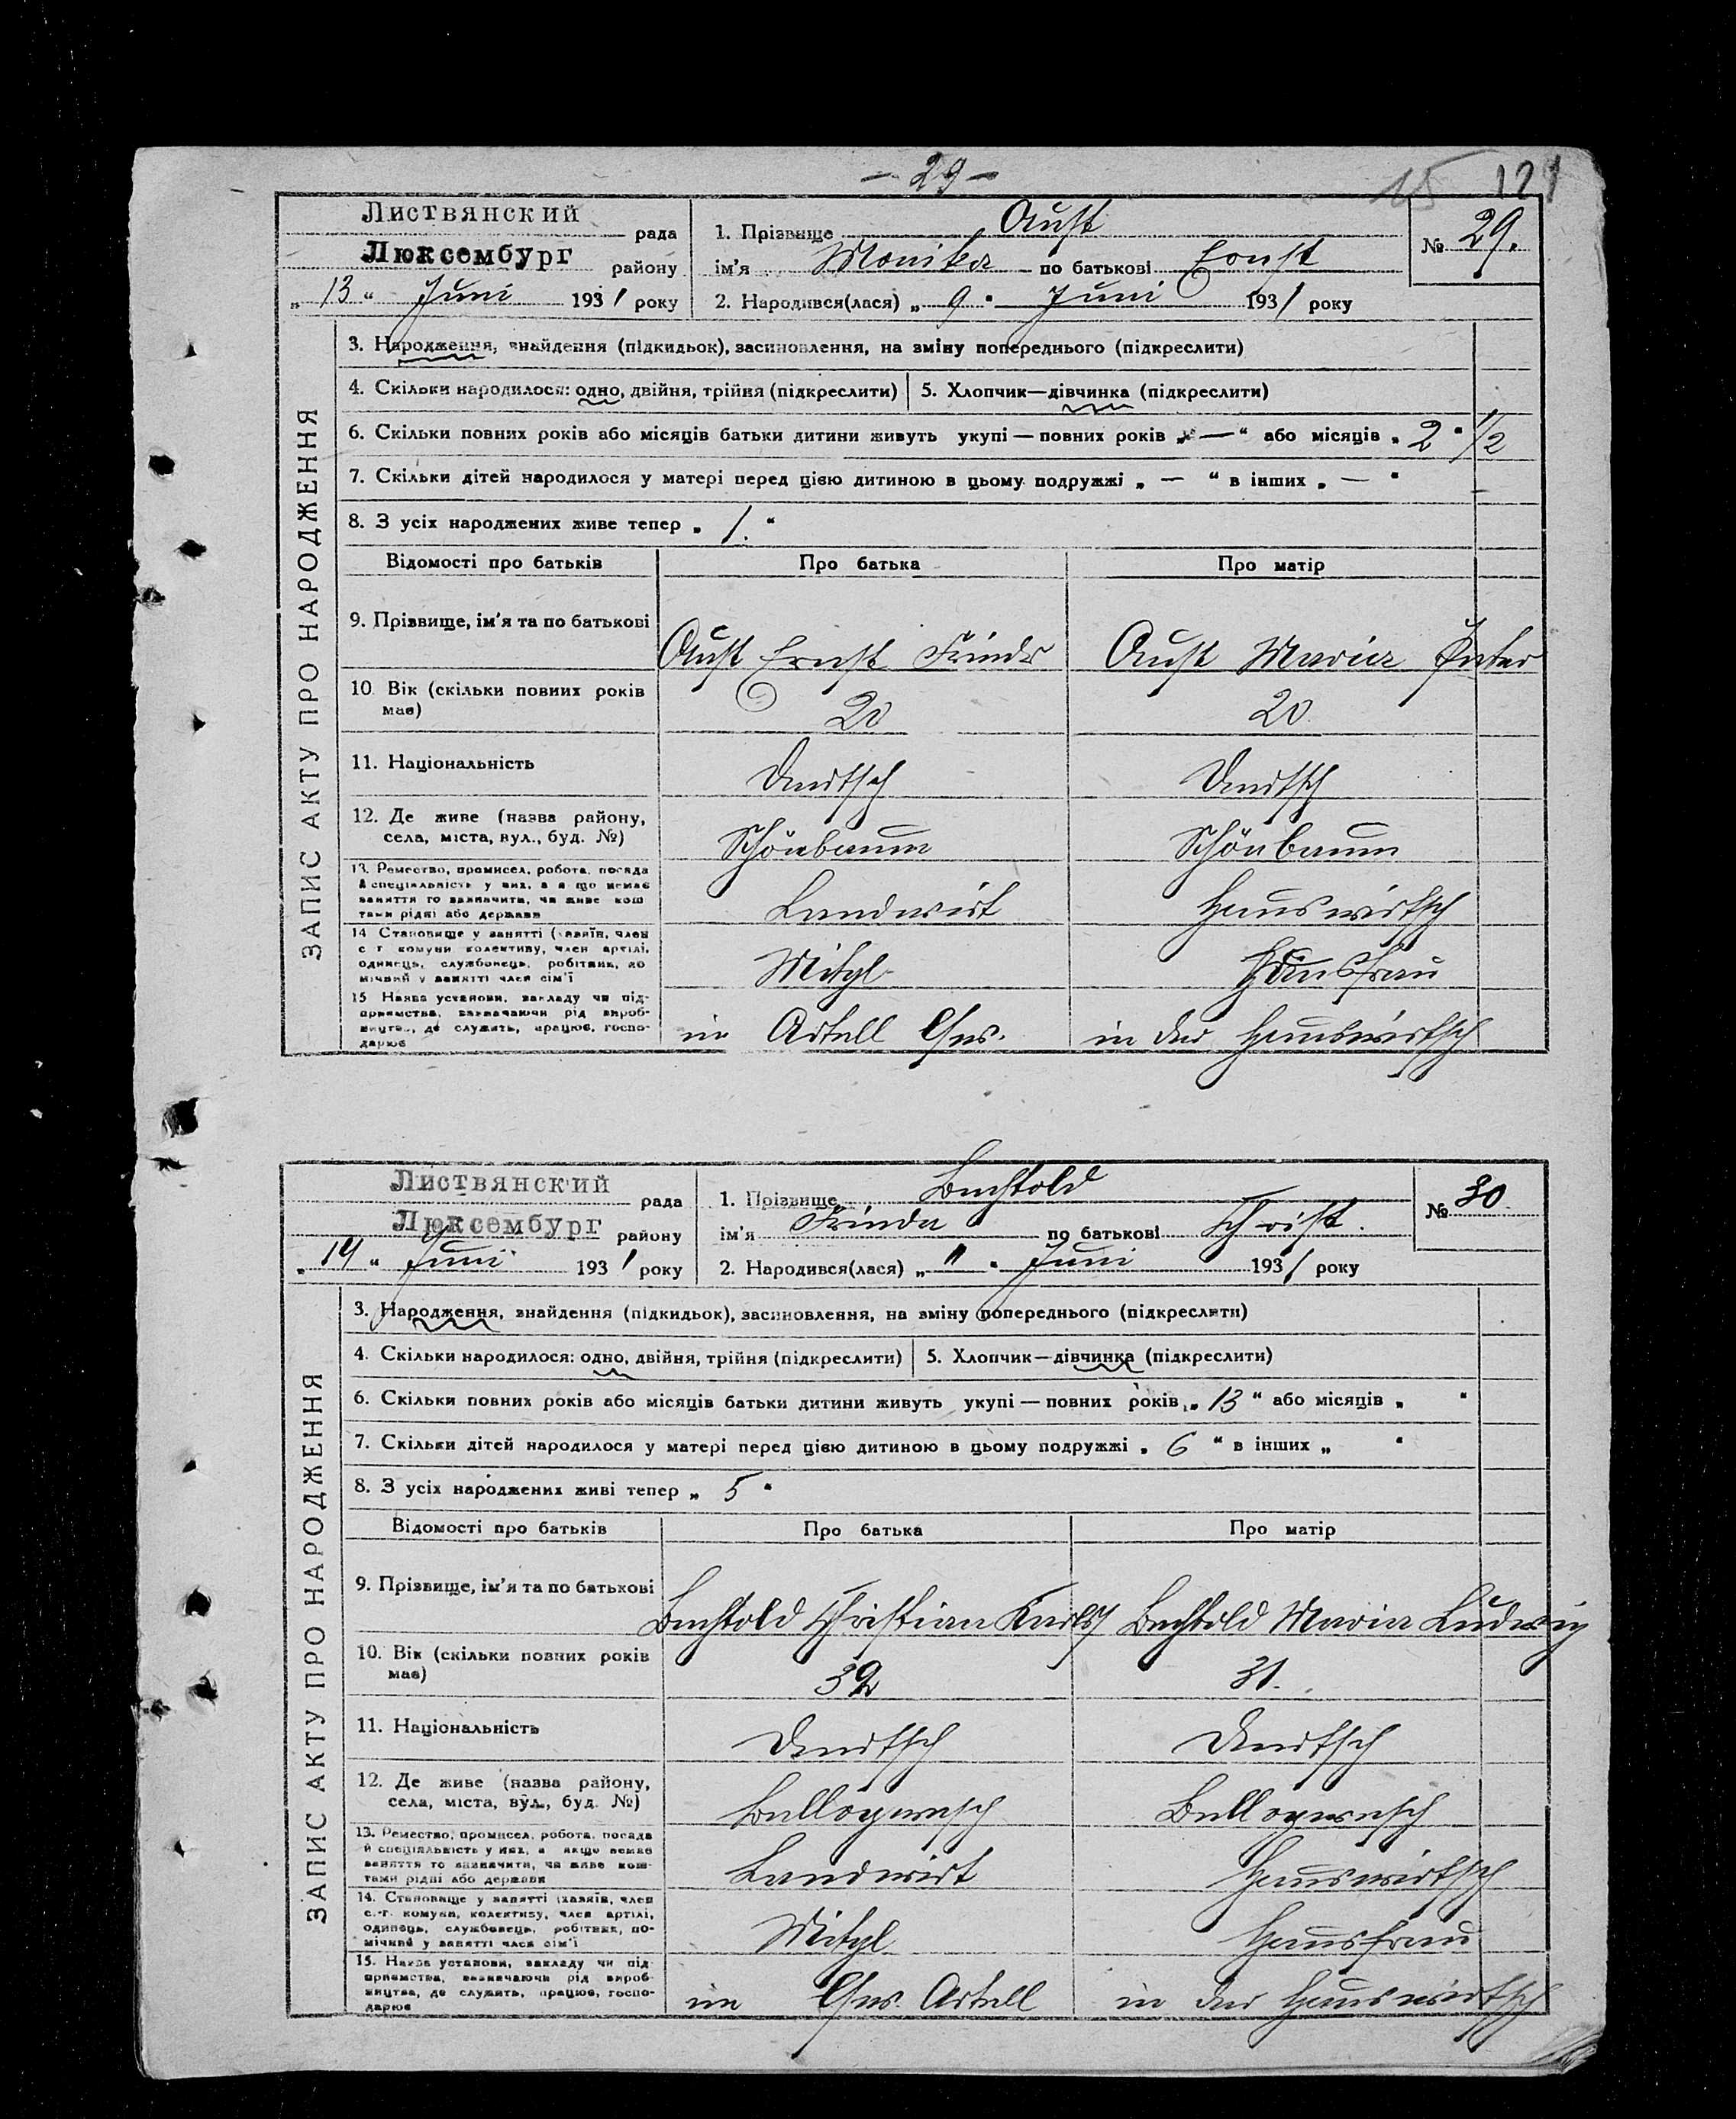 – 29 –
15 121
Листвянский рада
Люксембург району
„ 13 “ Juni 1931 року
1. Прізвище Aust
ім'я Monika по батькові Ernst
2. Народився(лася) „ 9 “ Juni 1931 року
№ 29.
ЗАПИС АКТУ ПРО НАРОДЖЕННЯ
3. Народження, знайдення (підкидьок), засиновлення, на зміну попереднього (підкреслити)
4. Скільки народилося: одно, двійня, трійня (підкреслити) 5. Хлопчик—дівчинка (підкреслити)
6. Скільки повних років або місяців батьки дитини живуть укупі — повних років „ — “ або місяців „ 2 “ 1/2
7. Скільки дітей народилося у матері перед цією дитиною в цьому подружжі „ — “ в інших „ — “
8. З усіх народжених живе тепер „ 1. “
Відомості про батьків Про батька Про матір
9. Прізвище, ім'я та по батькові Aust Ernst Friedr Aust Maria Peter
10. Вік (скільки повних років має) 20 20.
11. Національність Deutsch Deutsch
12. Де живе (назва району, села, міста, вул., буд. №) Schönbaum Schönbaum
13. Ремество, промисел, робота, посада й спеціяльність у них, а якщо немає заняття то зазначити, чи живе коштами рідні або держави Landwirt Hauswirtsch
14. Становище у занятті (хазяїн, член с.-г. комуни, колективу, член артілі, одинець, службовець, робітник, помічний у занятті член сім'ї Mitgl. Hausfrau
15. Назва установи, закладу чи підприємства, зазначаючи рід виробництва, де служить, працює, господарює im Artell Gew. in der Hauswirtsch
Листвянский рада
Люксембург району
„ 14 “ Juni 1931 року
1. Прізвище Bechtold
ім'я Frieda по батькові Christ.
2. Народився(лася) „ 11 “ Juni 1931 року
№ 30.
ЗАПИС АКТУ ПРО НАРОДЖЕННЯ
3. Народження, знайдення (підкидьок), засиновлення, на зміну попереднього (підкреслити)
4. Скільки народилося: одно, двійня, трійня (підкреслити) 5. Хлопчик—дівчинка (підкреслити)
6. Скільки повних років або місяців батьки дитини живуть укупі — повних років „ 13 “ або місяців „ “
7. Скільки дітей народилося у матері перед цією дитиною в цьому подружжі „ 6 “ в інших „ “
8. З усіх народжених живі тепер „ 5 “
Відомості про батьків Про батька Про матір
9. Прізвище, ім'я та по батькові Bechtold Christian Karl Bechtold Maria Ludwig
10. Вік (скільки повних років має) 32 31.
11. Національність Deutsch Deutsch
12. Де живе (назва району, села, міста, вул., буд. №) Bellogwesch Bellogwesch
13. Ремество, промисел, робота, посада й спеціяльність у них, а якщо немає заняття то зазначити, чи живе коштами рідні або держави Landwirt Hauswirtsch
14. Становище у занятті (хазяїн, член с.-г. комуни, колективу, член артілі, одинець, службовець, робітник, помічний у занятті член сім'ї Mitgl. Hausfrau
15. Назва установи, закладу чи підприємства, зазначаючи рід виробництва, де служить, працює, господарює im Gew. Artell in der Hauswirtsch